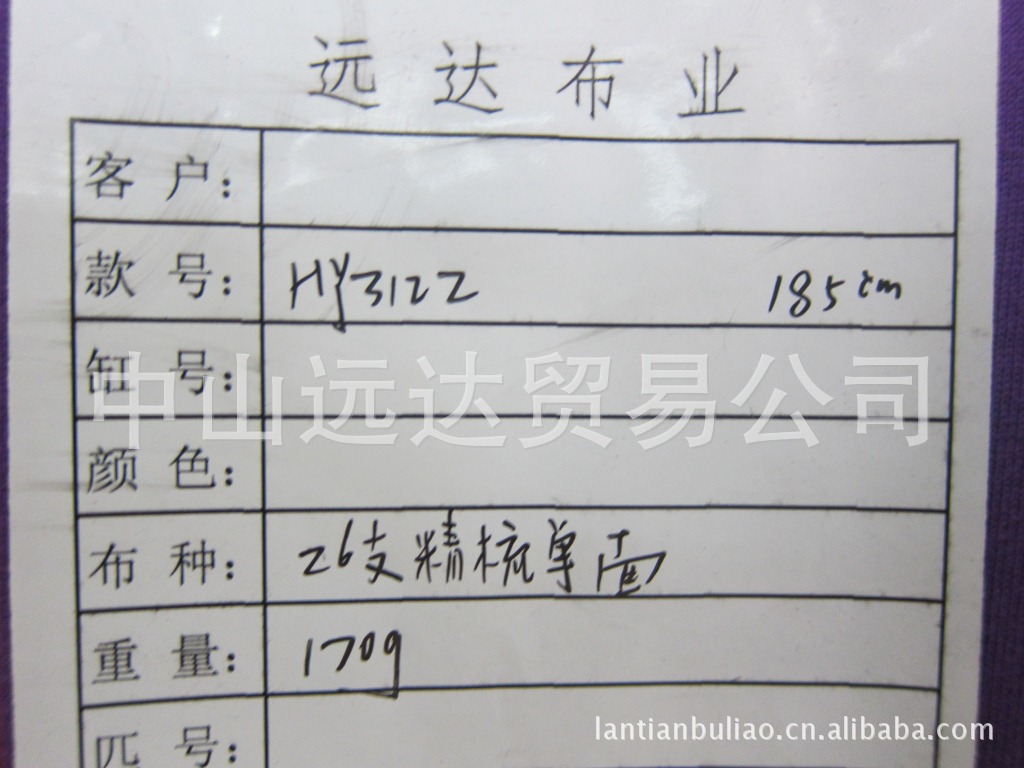 远达布业
客户：
款号： HY3122 185cm
缸号：
中山远达贸易公司
颜色：
布种： 26支精梳单面
重量： 170g
匹号：
lantianbuliao.cn.alibaba.com